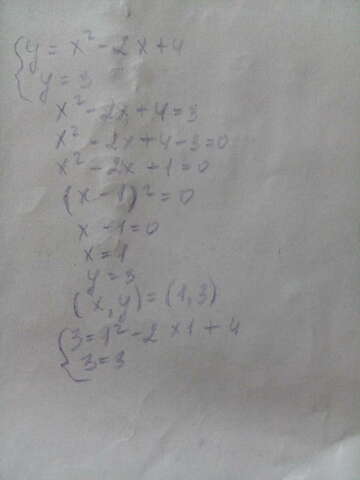 { y = x² - 2x + 4
y = 3
x² - 2x + 4 = 3
x² - 2x + 4 - 3 = 0
x² - 2x + 1 = 0
(x - 1)² = 0
x - 1 = 0
x = 1
y = 3
(x, y) = (1, 3)
{ 3 = 1² - 2 × 1 + 4
3 = 3